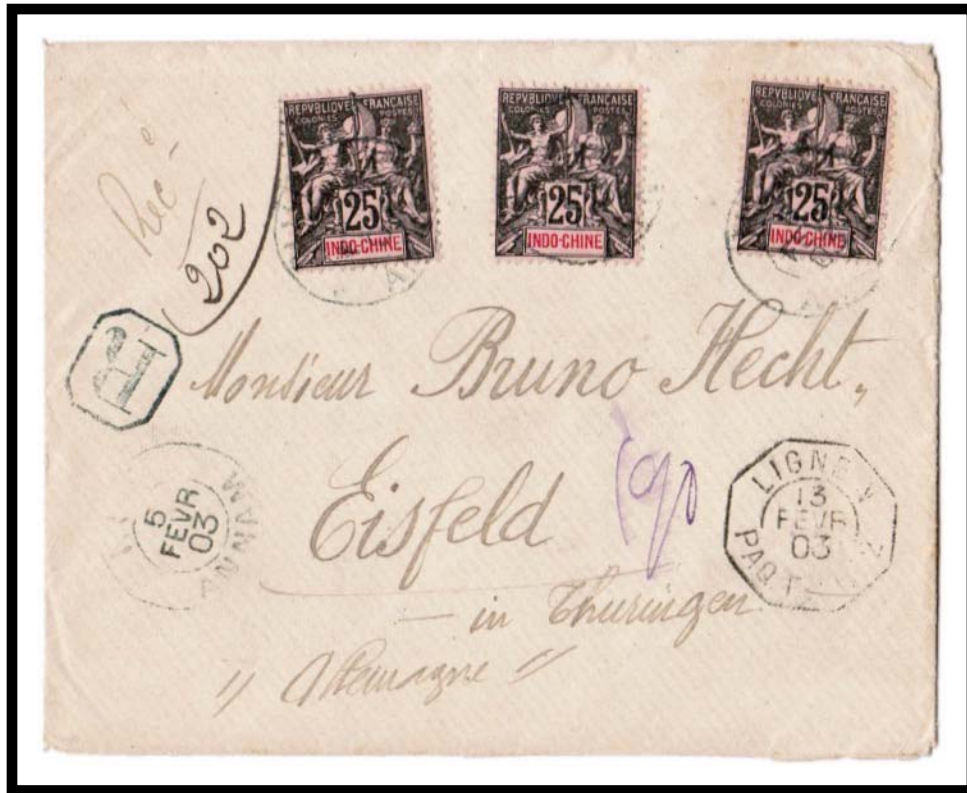 REPVBLIQVE FRANÇAISE
COLONIES POSTES
25
INDO-CHINE
REPVBLIQVE FRANÇAISE
COLONIES POSTES
25
INDO-CHINE
REPVBLIQVE FRANÇAISE
COLONIES POSTES
25
INDO-CHINE
Rec
202
R
Monsieur Bruno Hecht,
Eisfeld
— in Thuringen
" Allemagne "
5
FEVR
03
ANNAM
LIGNE N
13
FEVR
03
PAQ